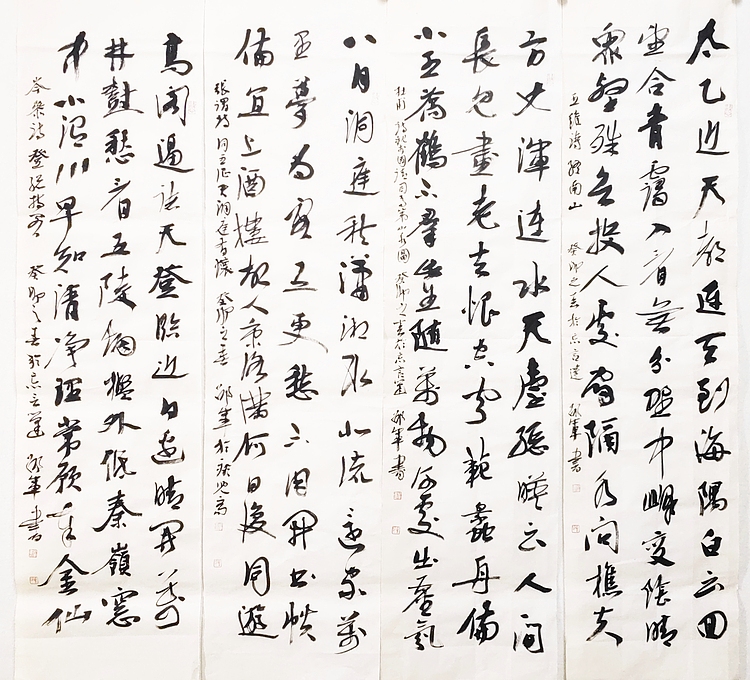 太乙近天都連天到海隅白云回
望合青靄入看無分野中峰變陰晴
眾壑殊欲投人處宿隔水问樵夫
王維詩 終南山 癸卯之春於忘言 軍書
方丈渾連水天臺總映云人间
長見畫老去恨空聞範蠡舟偏
小王喬鶴不群此生隨萬物何處出塵氛
杜甫 觀李固請司馬弟山水圖 癸卯之春於忘言 軍書
八月洞庭秋瀟湘水北流還家萬
里夢為客五更愁不用開書帙
偏宜上酒樓故人京洛滿何日復同遊
張謂詩 同王征君洞庭有懷 癸卯之春 軍於
高阁逼諸天登臨近日邊晴開萬
井樹愁看五陵烟檻外低秦嶺窓
中小渭川早知清净理常願奉金仙
岑参詩 登總持閣 癸卯之春於忘言 軍書